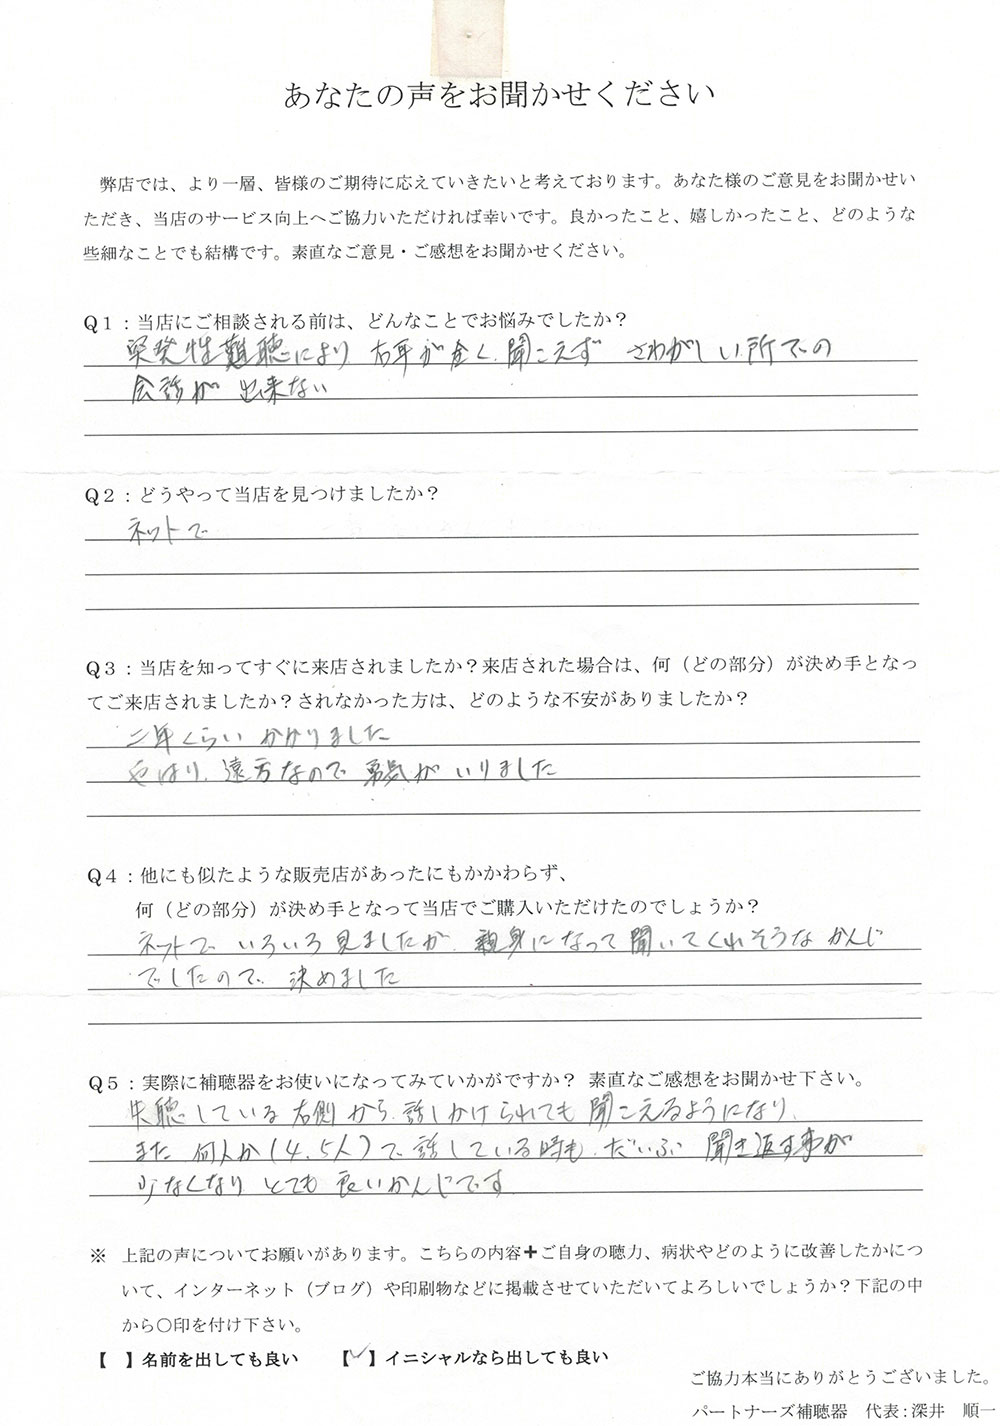 あなたの声をお聞かせください
弊店では、より一層、皆様のご期待に応えていきたいと考えております。あなた様のご意見をお聞かせい
ただき、当店のサービス向上へご協力いただければ幸いです。良かったこと、嬉しかったこと、どのような
些細なことでも結構です。素直なご意見・ご感想をお聞かせください。
Q1:当店にご相談される前は、どんなことでお悩みでしたか?
突発性難聴により 右耳が全く聞こえず さわがしい所での
会話が 出来ない
Q2:どうやって当店を見つけましたか?
ネットで
Q3:当店を知ってすぐに来店されましたか?来店された場合は、何(どの部分)が決め手となっ
てご来店されましたか?されなかった方は、どのような不安がありましたか?
二年くらい かかりました
やはり、遠方なので 勇気が いりました
Q4:他にも似たような販売店があったにもかかわらず、
何(どの部分)が決め手となって当店でご購入いただけたのでしょうか?
ネットで いろいろ見ましたが、親身になって聞いてくれそうな かんじ
でしたので 決めました
Q5:実際に補聴器をお使いになってみていかがですか? 素直なご感想をお聞かせ下さい。
失聴している 右側から 話しかけられても 聞こえるようになり、
また 何人か(4.5人)で 話している時も だいぶ 聞き返す事が
少なくなり とても 良いかんじです
※ 上記の声についてお願いがあります。こちらの内容+ご自身の聴力、病状やどのように改善したかにつ
いて、インターネット(ブログ)や印刷物などに掲載させていただいてよろしいでしょうか?下記の中
から○印を付け下さい。
【 】名前を出しても良い 【✓】イニシャルなら出しても良い
ご協力本当にありがとうございました。
パートナーズ補聴器 代表:深井 順一